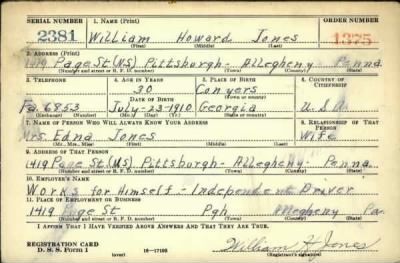 SERIAL NUMBER 1. NAME (Print) ORDER NUMBER
2381 William Howard Jones 1375
(First) (Middle) (Last)
2. ADDRESS (Print)
1419 Page St. (NS) Pittsburgh - Allegheny Penna
(Number and street or R. F. D. number) (Town) (County) (State)
3. TELEPHONE 4. AGE IN YEARS 5. PLACE OF BIRTH 6. COUNTRY OF CITIZENSHIP
30 Conyers
DATE OF BIRTH (Town or county)
Fa. 6853 July-23-1910 Georgia U.S.A.
(Exchange) (Number) (Mo.) (Day) (Yr.) (State or country)
7. NAME OF PERSON WHO WILL ALWAYS KNOW YOUR ADDRESS 8. RELATIONSHIP OF THAT PERSON
Mrs. Edna Jones Wife
(Mr., Mrs., Miss) (First) (Middle) (Last)
9. ADDRESS OF THAT PERSON
1419 Page St. (NS) Pittsburgh - Allegheny - Penna.
(Number and street or R. F. D. number) (Town) (County) (State)
10. EMPLOYER'S NAME
Works for Himself - Independent Driver
11. PLACE OF EMPLOYMENT OR BUSINESS
1419 Page St Pgh Allegheny Pa.
(Number and street or R. F. D. number) (Town) (County) (State)
I AFFIRM THAT I HAVE VERIFIED ABOVE ANSWERS AND THAT THEY ARE TRUE.
REGISTRATION CARD
D. S. S. Form 1 (over) William H Jones
(Registrant's signature)